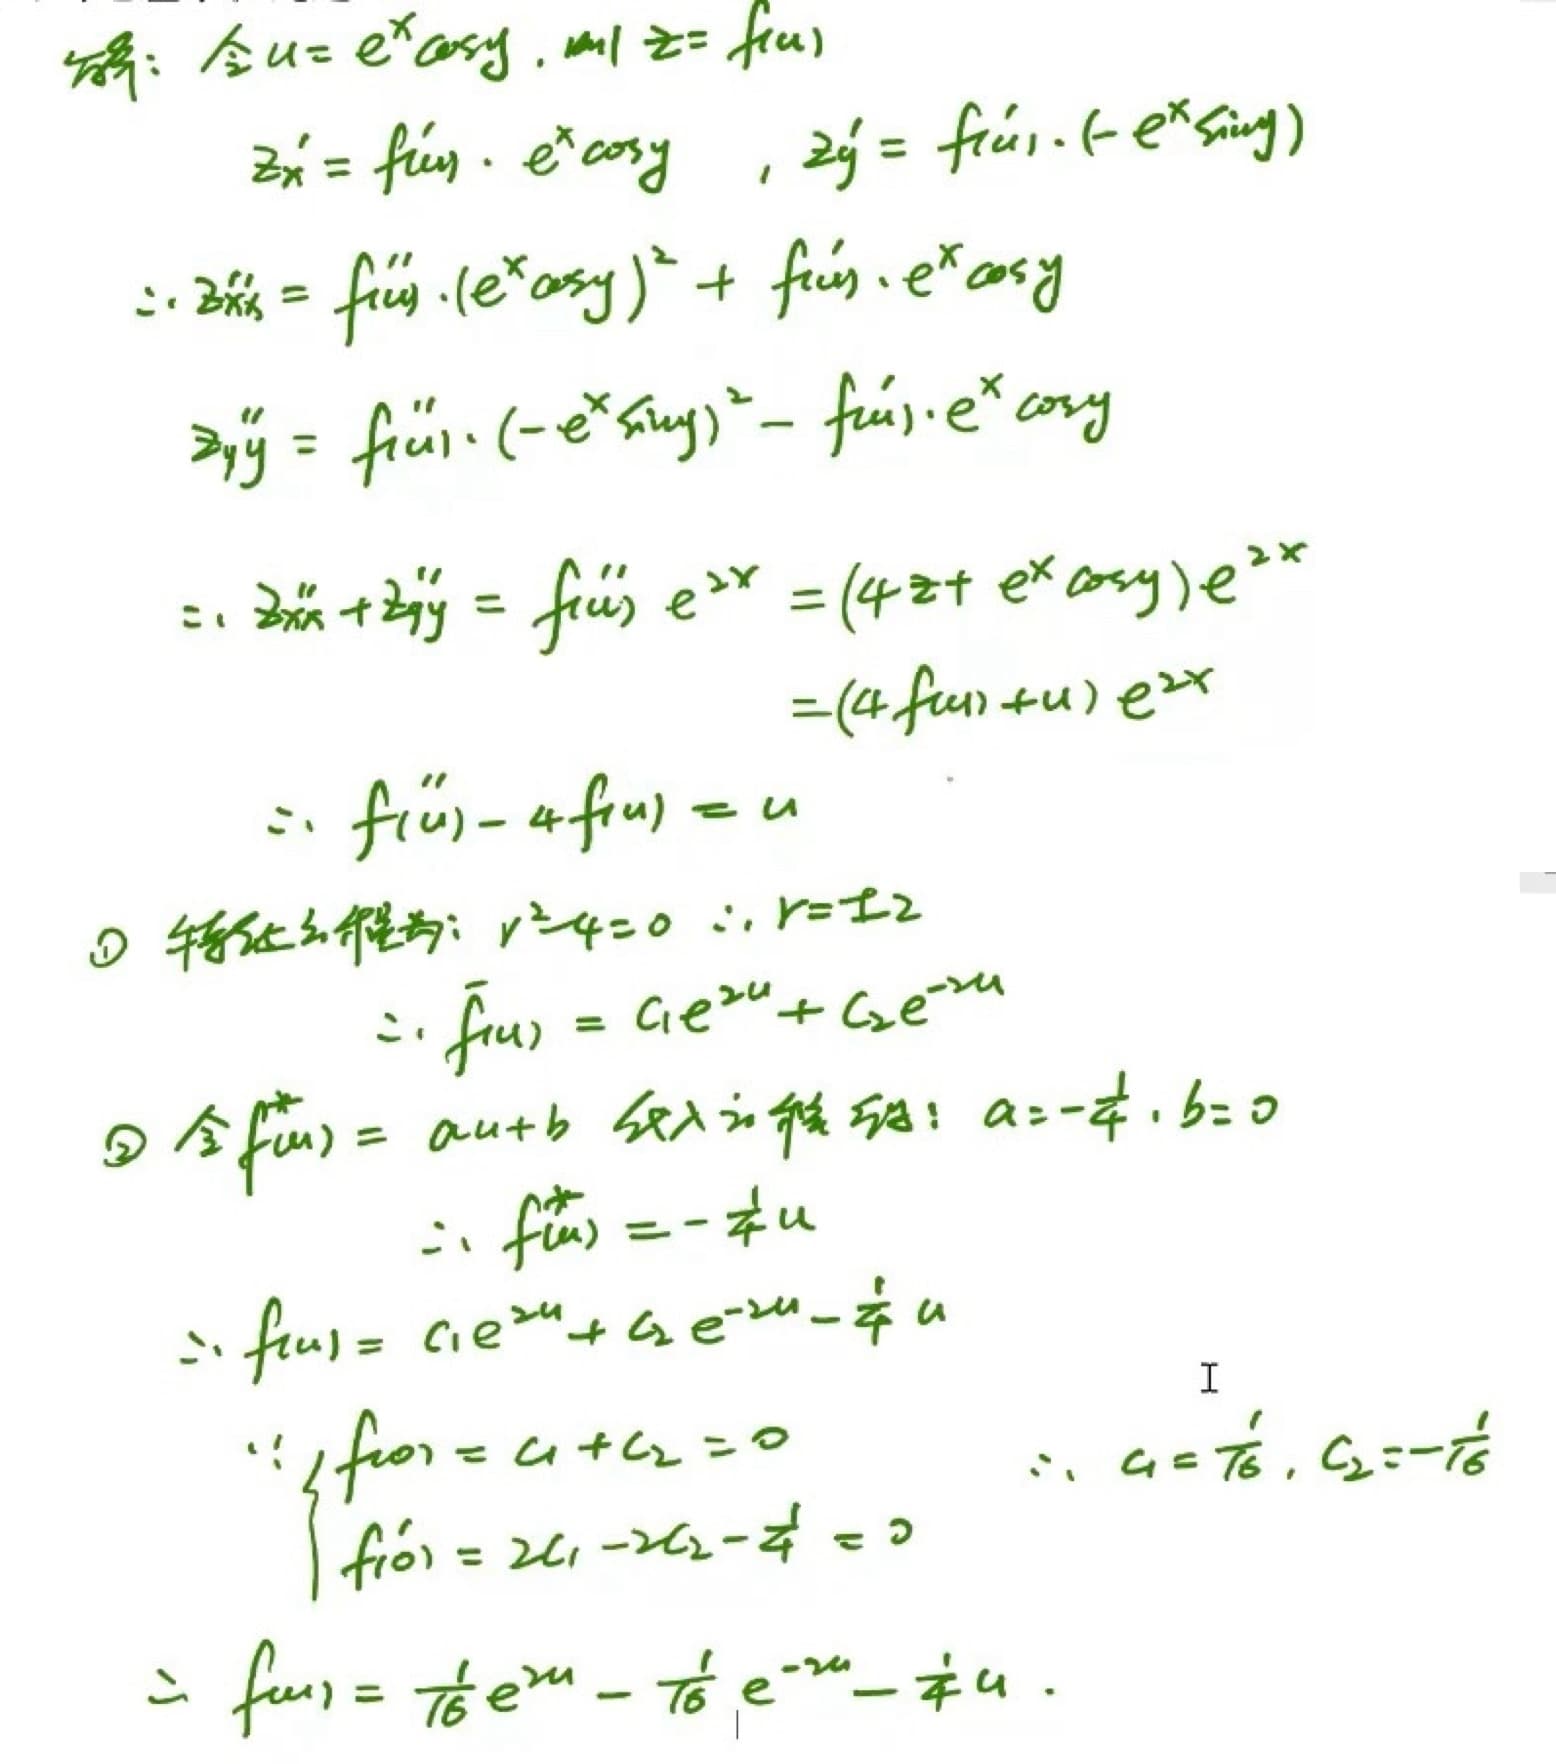 解：令u=e^x cosy，则 z=f(u)
z'x = f'(u)·e^x cosy ，z'y = f'(u)·(-e^x siny)
∴ z''xx = f''(u)·(e^x cosy)² + f'(u)·e^x cosy
z''yy = f''(u)·(-e^x siny)² - f'(u)·e^x cosy
∴ z''xx + z''yy = f''(u) e^{2x} = (4z + e^x cosy)e^{2x}
= (4f(u)+u) e^{2x}
∴ f''(u) - 4f(u) = u
① 特征方程为：r²-4=0 ∴ r=±2
∴ f̄(u) = C₁e^{2u} + C₂e^{-2u}
② 令 f*(u) = au+b 代入方程 得：a=-1/4，b=0
∴ f*(u) = -1/4 u
∴ f(u) = C₁e^{2u} + C₂e^{-2u} - 1/4 u
∵ { f(0) = C₁+C₂ = 0 ∴ C₁=1/16，C₂=-1/16
f'(0) = 2C₁-2C₂-1/4 = 0
∴ f(u) = 1/16 e^{2u} - 1/16 e^{-2u} - 1/4 u .